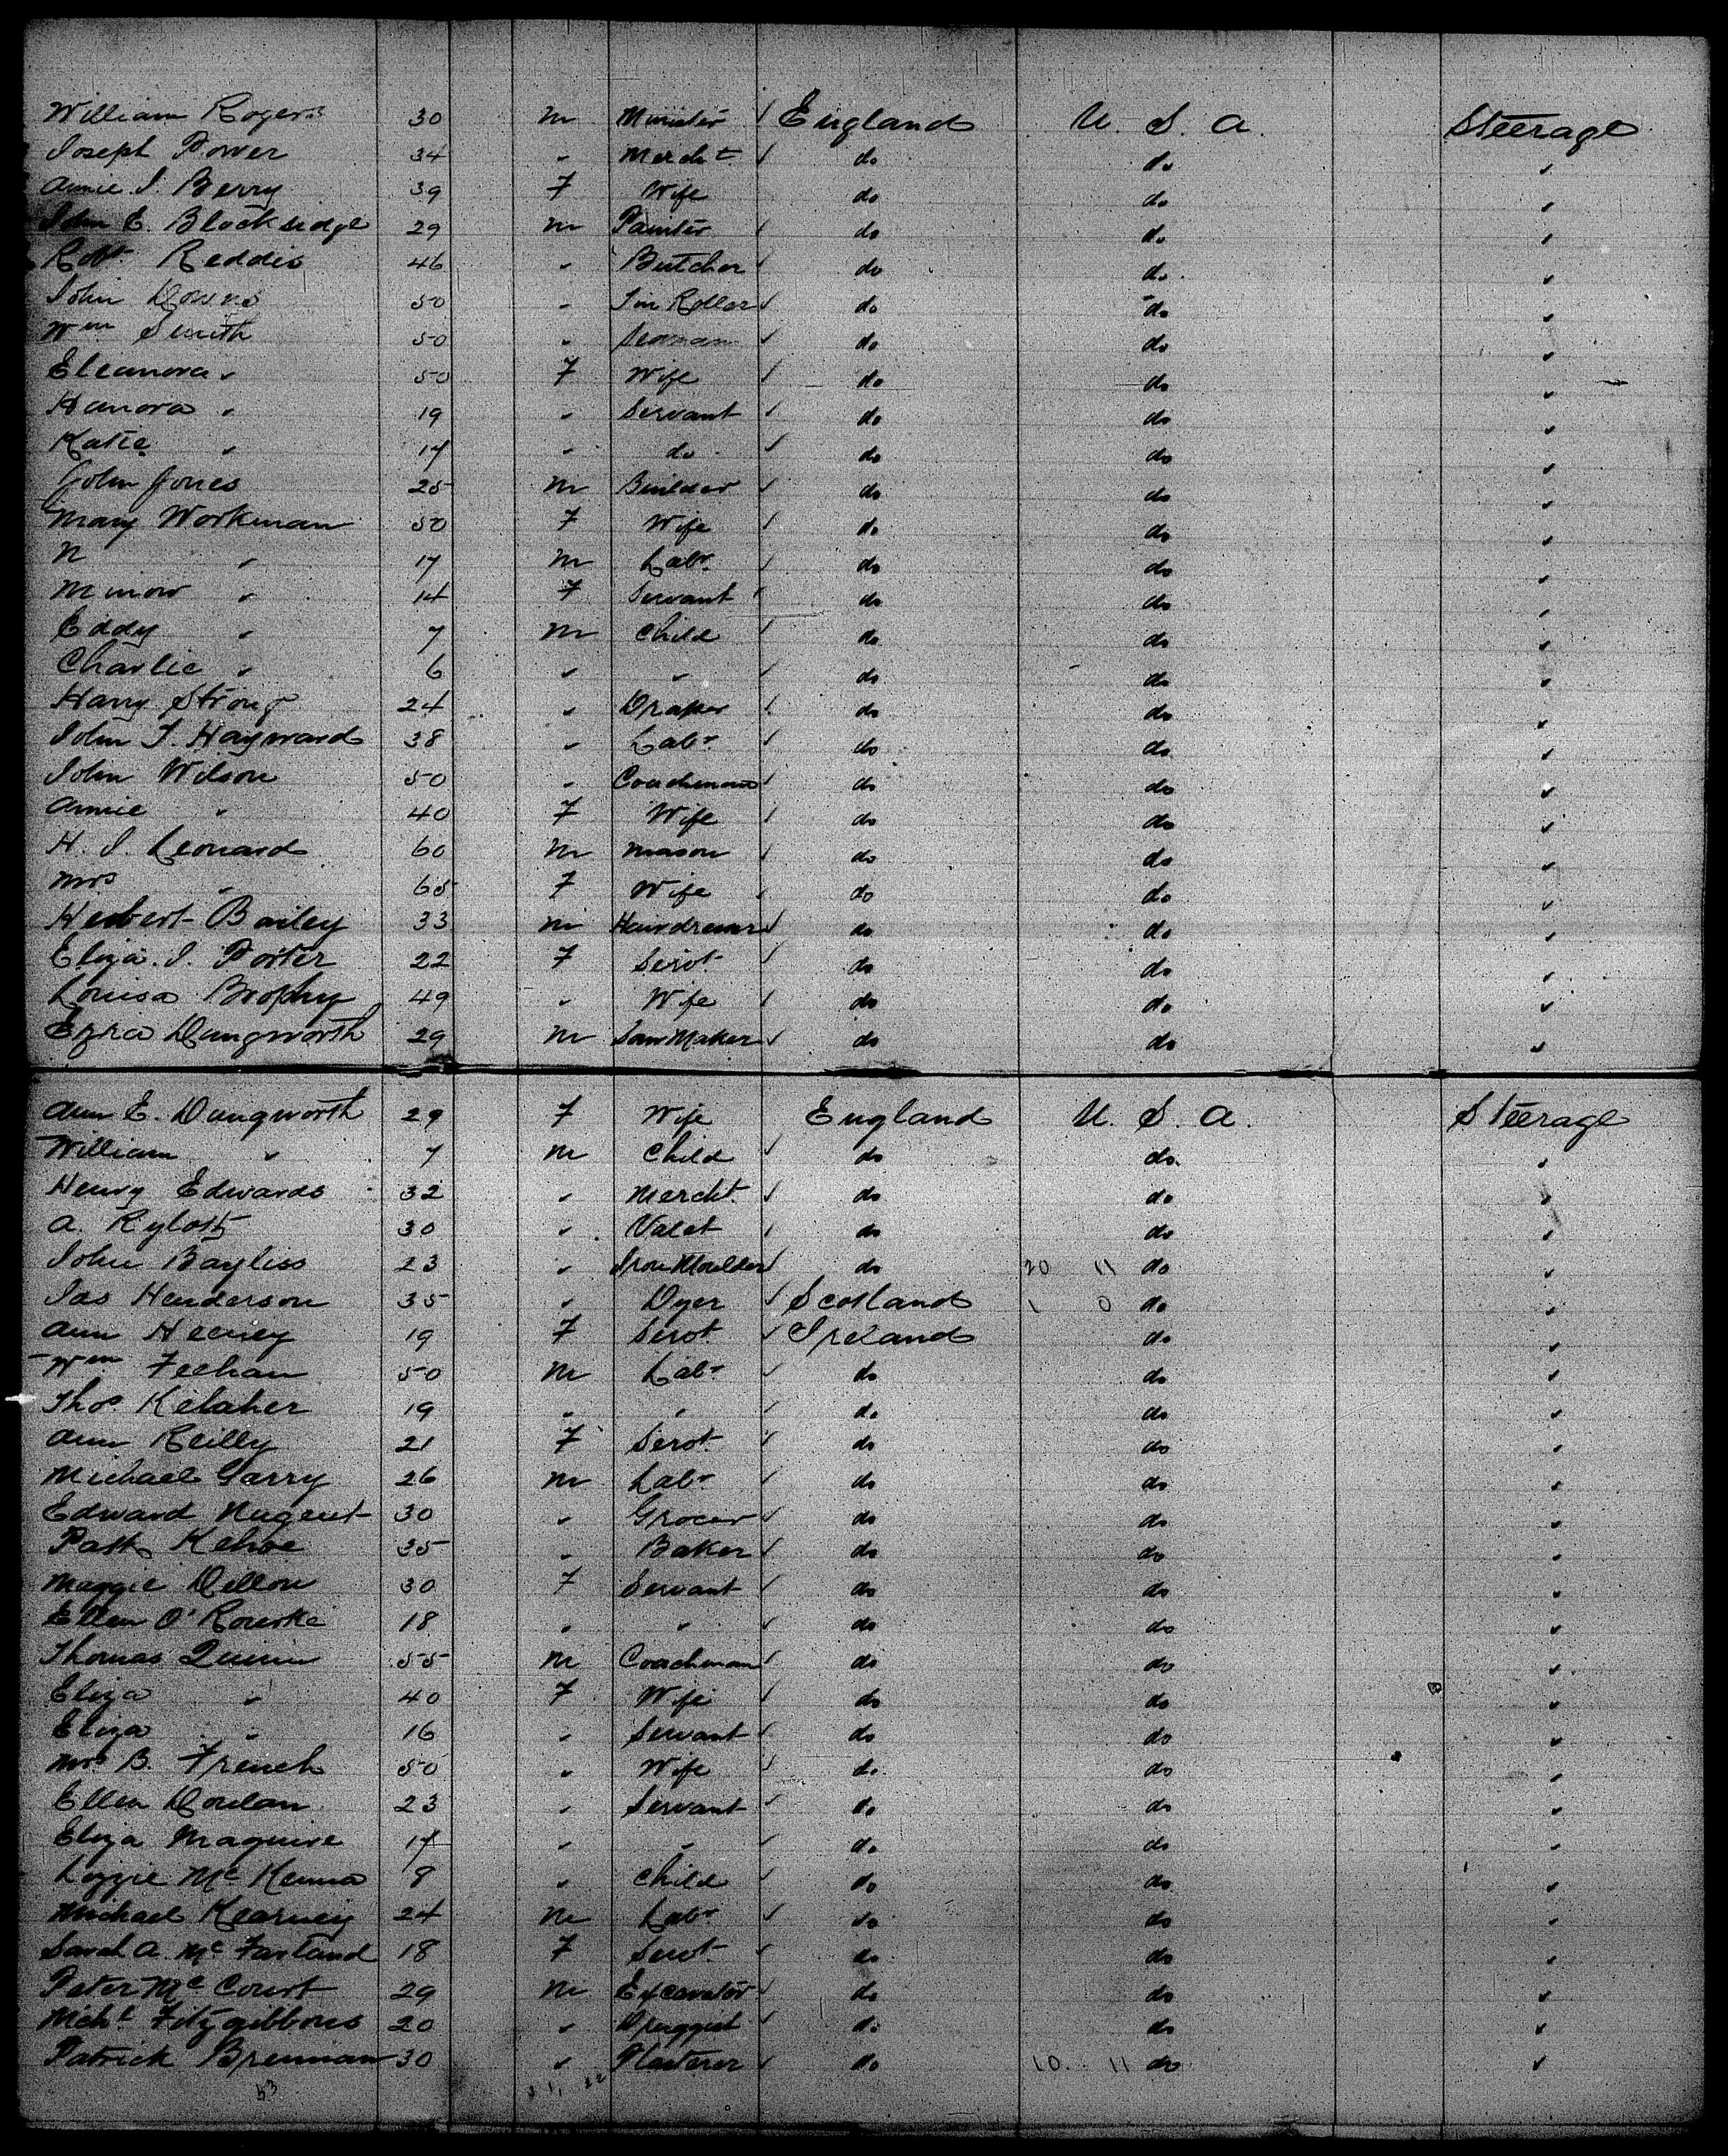 William Rogers 30 m Minister ✓ England U. S. A. Steerage
Joseph Power 34 " Mercht ✓ do do "
Annie J. Berry 39 F Wife do do "
John E. Blocksidge 29 m Painter ✓ do do "
Robt Reddis 46 " Butcher ✓ do do "
John Downs 50 " Tin Roller ✓ do do "
Wm Smith 50 " Seaman ✓ do do "
Eleanora " 50 F Wife ✓ do do "
Hanora " 19 " Servant ✓ do do "
Katie " 17 " do ✓ do do "
John Jones 25 m Builder ✓ do do "
Mary Workman 50 F Wife ✓ do do "
N " 17 m Labr ✓ do do "
" 14 F Servant ✓ do do "
Eddy " 7 m Child ✓ do do "
Charlie " 6 " " ✓ do do "
Harry Strong 24 " Draper ✓ do do "
John T. Hayward 38 " Labr ✓ do do "
John Wilson 50 " Coachman ✓ do do "
Annie " 40 F Wife ✓ do do "
H. J. Leonard 60 m Mason ✓ do do "
Mrs " 65 F Wife ✓ do do "
Herbert Bailey 33 m Hairdresser ✓ do do "
Eliza. J. Porter 22 F Servt ✓ do do "
Louisa Brophy 49 " Wife ✓ do do "
Ezra Dungworth 29 m Saw Maker ✓ do do "
Ann E. Dungworth 29 F Wife England U. S. A. Steerage
William " 7 m Child ✓ do do "
Henry Edwards 32 " Mercht ✓ do do "
A. 30 " Valet ✓ do do "
John Bayliss 23 " Iron Moulder ✓ do 20 11 do "
Jas Henderson 35 " Dyer ✓ Scotland 1 0 do "
Ann Heeney 19 F Servt ✓ Ireland do "
Wm Feehan 50 m Labr ✓ do do "
Thos Kelaher 19 " " ✓ do do "
Ann Reilly 21 F Servt ✓ do do "
Michael Garry 26 m Labr ✓ do do "
Edward Nugent 30 " Grocer ✓ do do "
Patk Kehoe 35 " Baker ✓ do do "
Maggie Dillon 30 F Servant ✓ do do "
Ellen O'Rourke 18 " " ✓ do do "
Thomas Quinn 55 m Coachman ✓ do do "
Eliza " 40 F Wife ✓ do do "
Eliza " 16 " Servant do do "
Mrs B. French 50 " Wife ✓ do do "
Ellen Donlan 23 " Servant ✓ do do "
Eliza Maguire 17 " " ✓ do do "
Lizzie McKenna 8 " Child ✓ do do "
Michael Kearney 24 m Labr ✓ do do "
Sarah A. McFarland 18 F Servt ✓ do do "
Peter McCourt 29 m Excavator ✓ do do "
Michl Fitzgibbons 20 " Druggist ✓ do do "
Patrick Brennan 30 " Plasterer ✓ do 10 11 do "
53